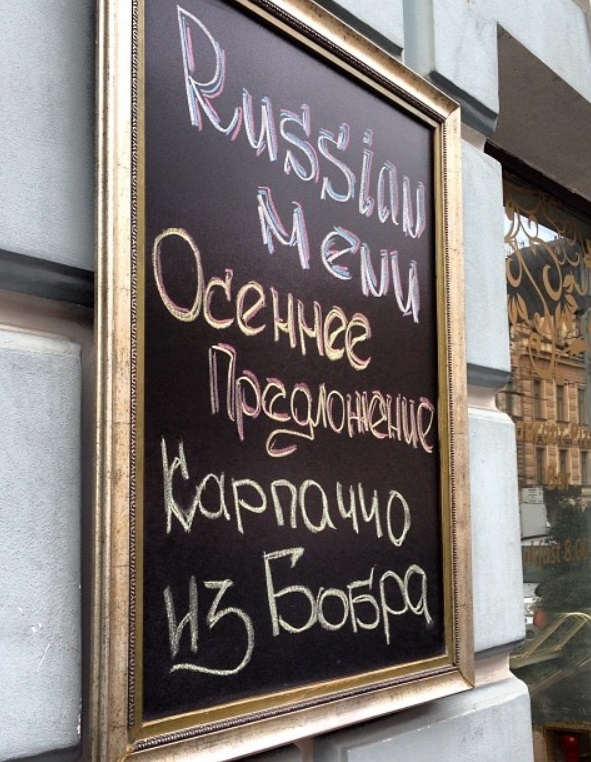 Russian
menu
Осеннее
Предложение
Карпаччо
из Бобра